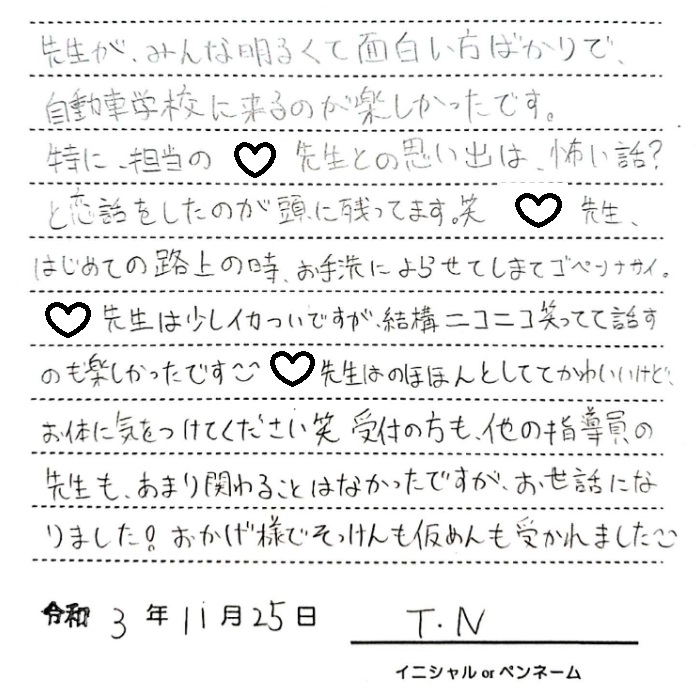 先生が、みんな明るくて面白い方ばかりで、
自動車学校に来るのが楽しかったです。
特に、担当の♡先生との思い出は、怖い話?
と恋話をしたのが頭に残ってます。笑 ♡先生、
はじめての路上の時、お手洗によらせてしまてゴペンナサイ。
♡先生は少しイカついですが、結構ニコニコ笑ってて話す
のも楽しかったです ♡先生はのほほんとしててかわいいけど、
お体に気をつけてください笑 受付の方も、他の指導員の
先生も、あまり関わることはなかったですが、お世話にな
りました! おかげ様でそっけんも仮めんも受かれました
令和 3 年 11 月 25 日 T.N
イニシャル or ペンネーム